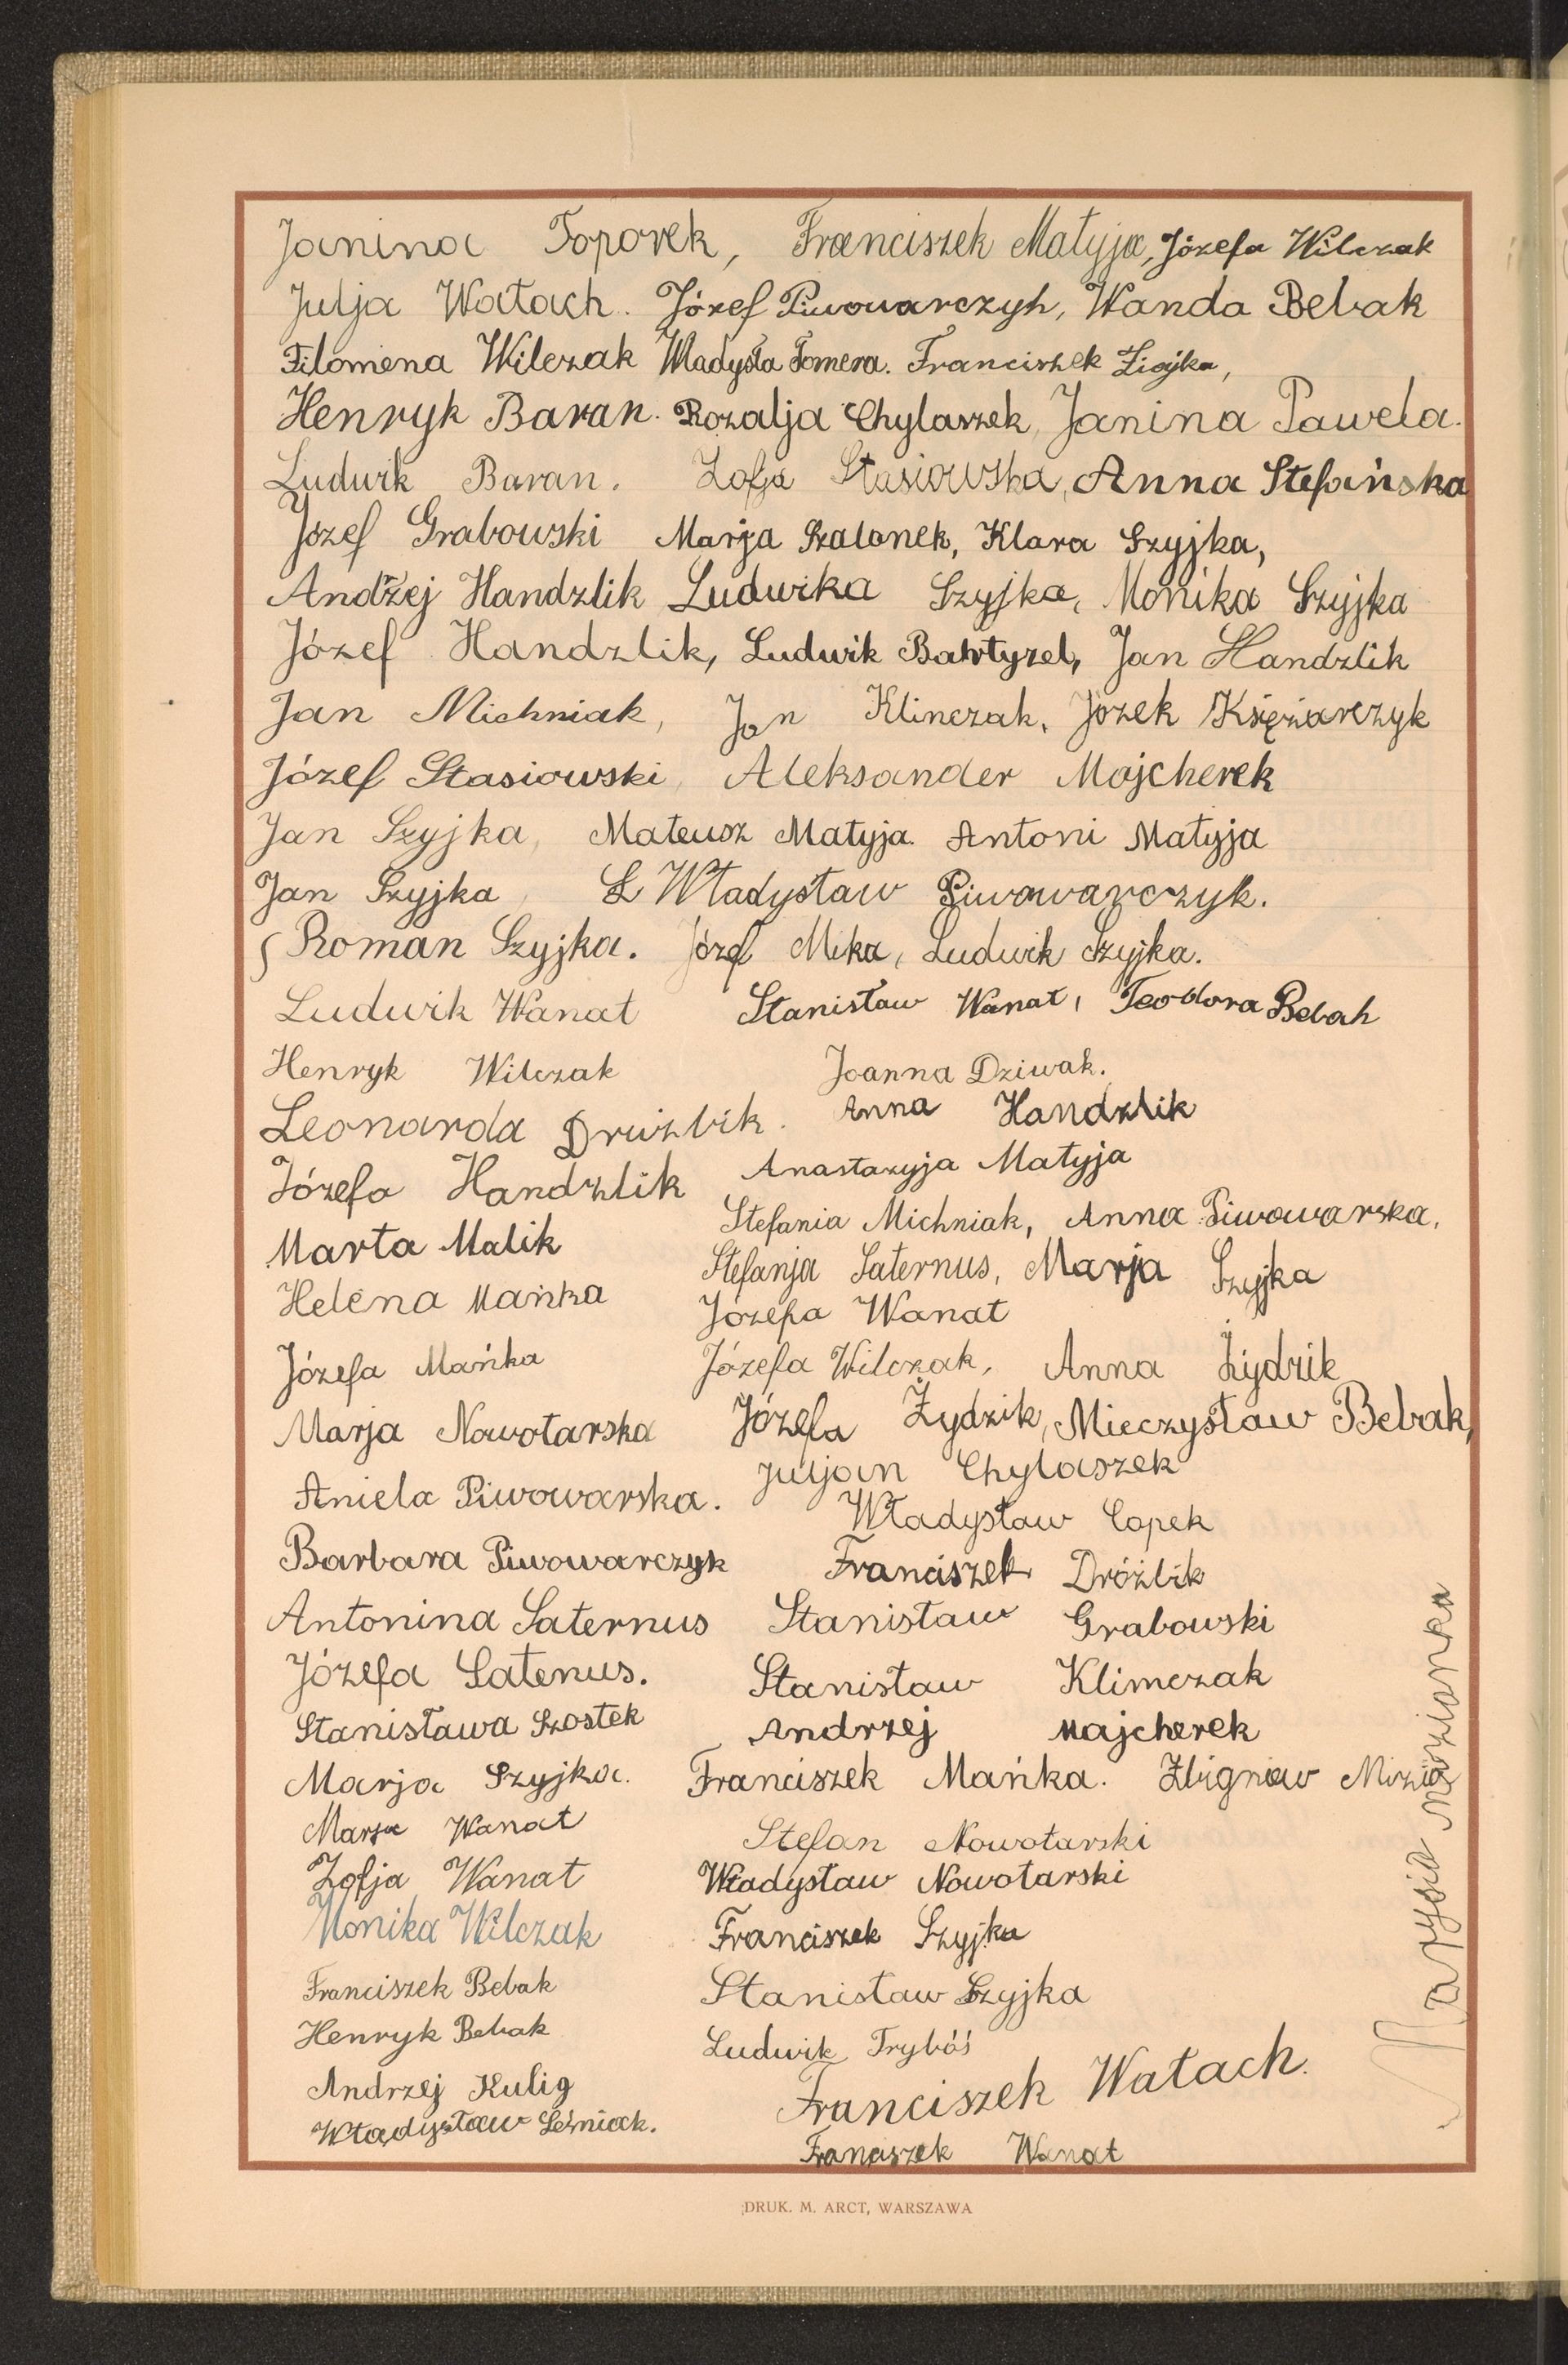 Janina Toporek, Franciszek Matyja, Józefa Wilczak
Julja Wałach. Józef Piwowarczyk, Wanda Bebak
Filomena Wilczak Władysła Tomera. Franciszek
Henryk Baran. Rozalja Chylaszek, Janina Pawela.
Ludwik Baran. Zofja Stasiowska, Anna Stefańska
Józef Grabowski Marja Szalonek, Klara Szyjka,
Andrzej Handzlik Ludwika Szyjka, Monika Szyjka
Józef Handzlik, Ludwik Jan Handzlik
Jan Michniak, Jan Klinczak, Józek Księżarczyk
Józef Stasiowski, Aleksander Majcherek
Jan Szyjka, Mateusz Matyja. Antoni Matyja
Jan Szyjka, Władysław Piwowarczyk.
Roman Szyjka. Józef Mika, Ludwik Szyjka.
Ludwik Wanat Stanisław Wanat, Teodora Bebak
Henryk Wilczak Joanna Dziwak.
Leonarda Anna Handzlik
Józefa Handzlik Anastazyja Matyja
Marta Malik Stefania Michniak, Anna Piwowarska,
Helena Mańka Stefanja Saternus, Marja Szyjka
Józefa Wanat
Józefa Mańka Józefa Wilczak, Anna Żydzik
Marja Nowotarska Józefa Żydzik, Mieczysław Bebak,
Aniela Piwowarska. Juljan Chylaszek
Władysław Capek
Barbara Piwowarczyk Franciszek Dróźbik
Antonina Saternus Stanisław Grabowski
Józefa Satenus. Stanisław Klimczak
Stanisława Szostek Andrzej Majcherek
Marja Szyjka. Franciszek Mańka. Zbigniew Mizia
Marja Wanat Stefan Nowotarski
Zofja Wanat Władysław Nowotarski
Monika Wilczak Franciszek Szyjka
Franciszek Bebak Stanisław Szyjka
Henryk Bebak Ludwik Tryboś
Andrzej Kulig Franciszek Wałach.
Władysław Leśniak. Franciszek Wanat
Marysia
DRUK. M. ARCT, WARSZAWA